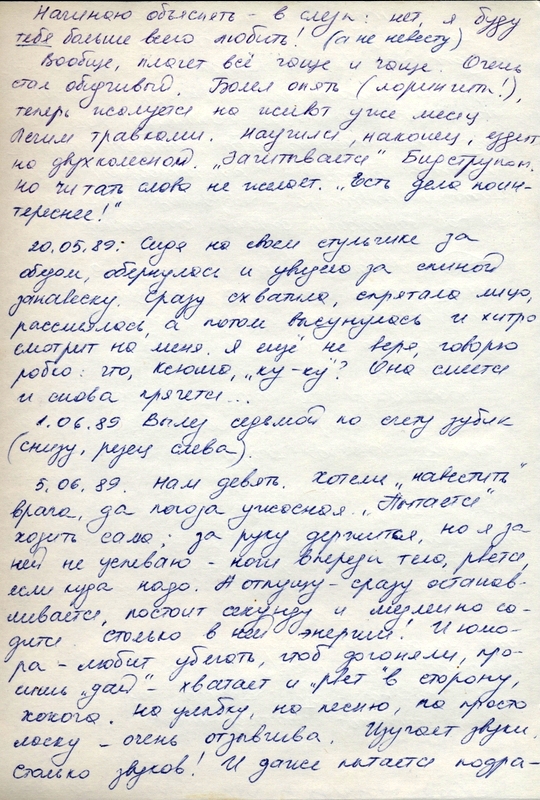 Начинаю объяснять - в слезы: нет, я буду
тебя больше всего любить! (а не невесту)
Вообще, плачет всё чаще и чаще. Очень
стал обидчивый. Болел опять (ларингит!),
теперь жалуется на живот уже месяц.
Лечим травками. Научился, наконец, ездить
на двухколесном. „Зачитывается" Бидструпом.
но читать слова не желает. „Есть дела поин-
тереснее!"
20.05.89: Сидя на своем стульчике за
обедом, обернулась и увидела за спиной
занавеску. Сразу схватила, спрятала лицо,
рассмеялась, а потом высунулась и хитро
смотрит на меня. Я ещё не веря, говорю
робко: что, Ксюша, „ку-ку"? Она смеется
и снова прячется...
1.06.89 Вылез седьмой по счету зубик
(снизу, резец слева).
5.06.89. Нам девять. Хотели „навестить"
врача, да погода ужасная. „Пытается"
ходить сама: за руку держится, но я за
ней не успеваю - ноги впереди тела, рвется,
если куда надо. А отпущу - сразу останав-
ливается, постоит секунду и медленно са-
дится столько в ней энергии! И юмо-
ра - любит убегать, чтоб догоняли, про-
сишь „дай" - хватает и „рвет" в сторону,
хохоча. На улыбку, на песню, на просто
ласку - очень отзывчива. Изучает звуки.
столько звуков! И даже пытается подра-